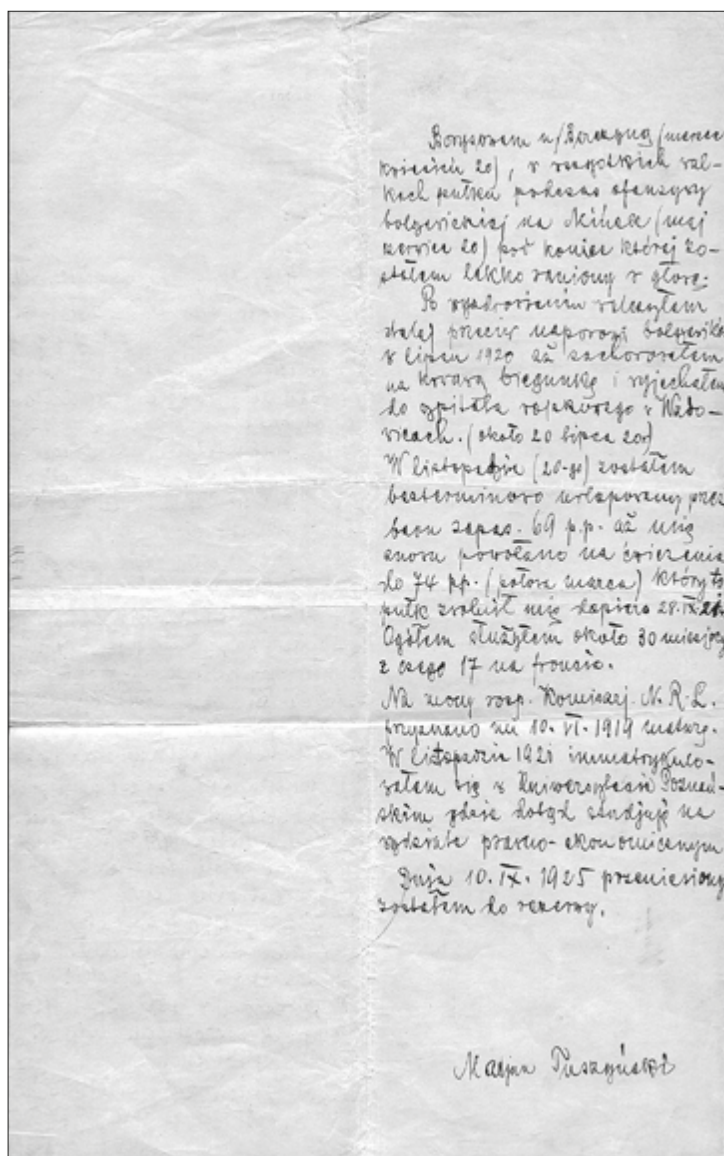 Borysowem n/Berezyną (marzec
kwiecień 20), w wszystkich wal-
kach pułku podczas ofenzywy
bolszewickiej na Mińsk (maj
czerwiec 20) pod koniec której zo-
stałem lekko raniony w głowę.
Po wyzdrowieniu walczyłem
dalej przeciw naporowi bolszewików
w lipcu 1920 aż zachorowałem
na krwawą biegunkę i wyjechałem
do szpitala wojskowego w Wado-
wicach. (około 20 lipca 20r)
W listopadzie (20-go) zostałem
bezterminowo urlopowany przez
baon zapas. 69 p.p. aż mię
znowu powołano na ćwiczenia
do 74 pp. (połowa marca) który to
pułk zwolnił mię dopiero 28.IX.21.
Ogółem służyłem około 30 miesięcy
z czego 17 na froncie.
Na mocy rozp. Komisarj. N.R.L.
przyznano mi 10.VI.1919 maturę.
W listopadzie 1921 immatrykulo-
wałem się w Uniwersytecie Poznań-
skim gdzie dotąd studjuję na
wydziale prawno-ekonomicznym
Dnia 10.IX.1925 przeniesiony
zostałem do rezerwy.
Marjan Tuszyński